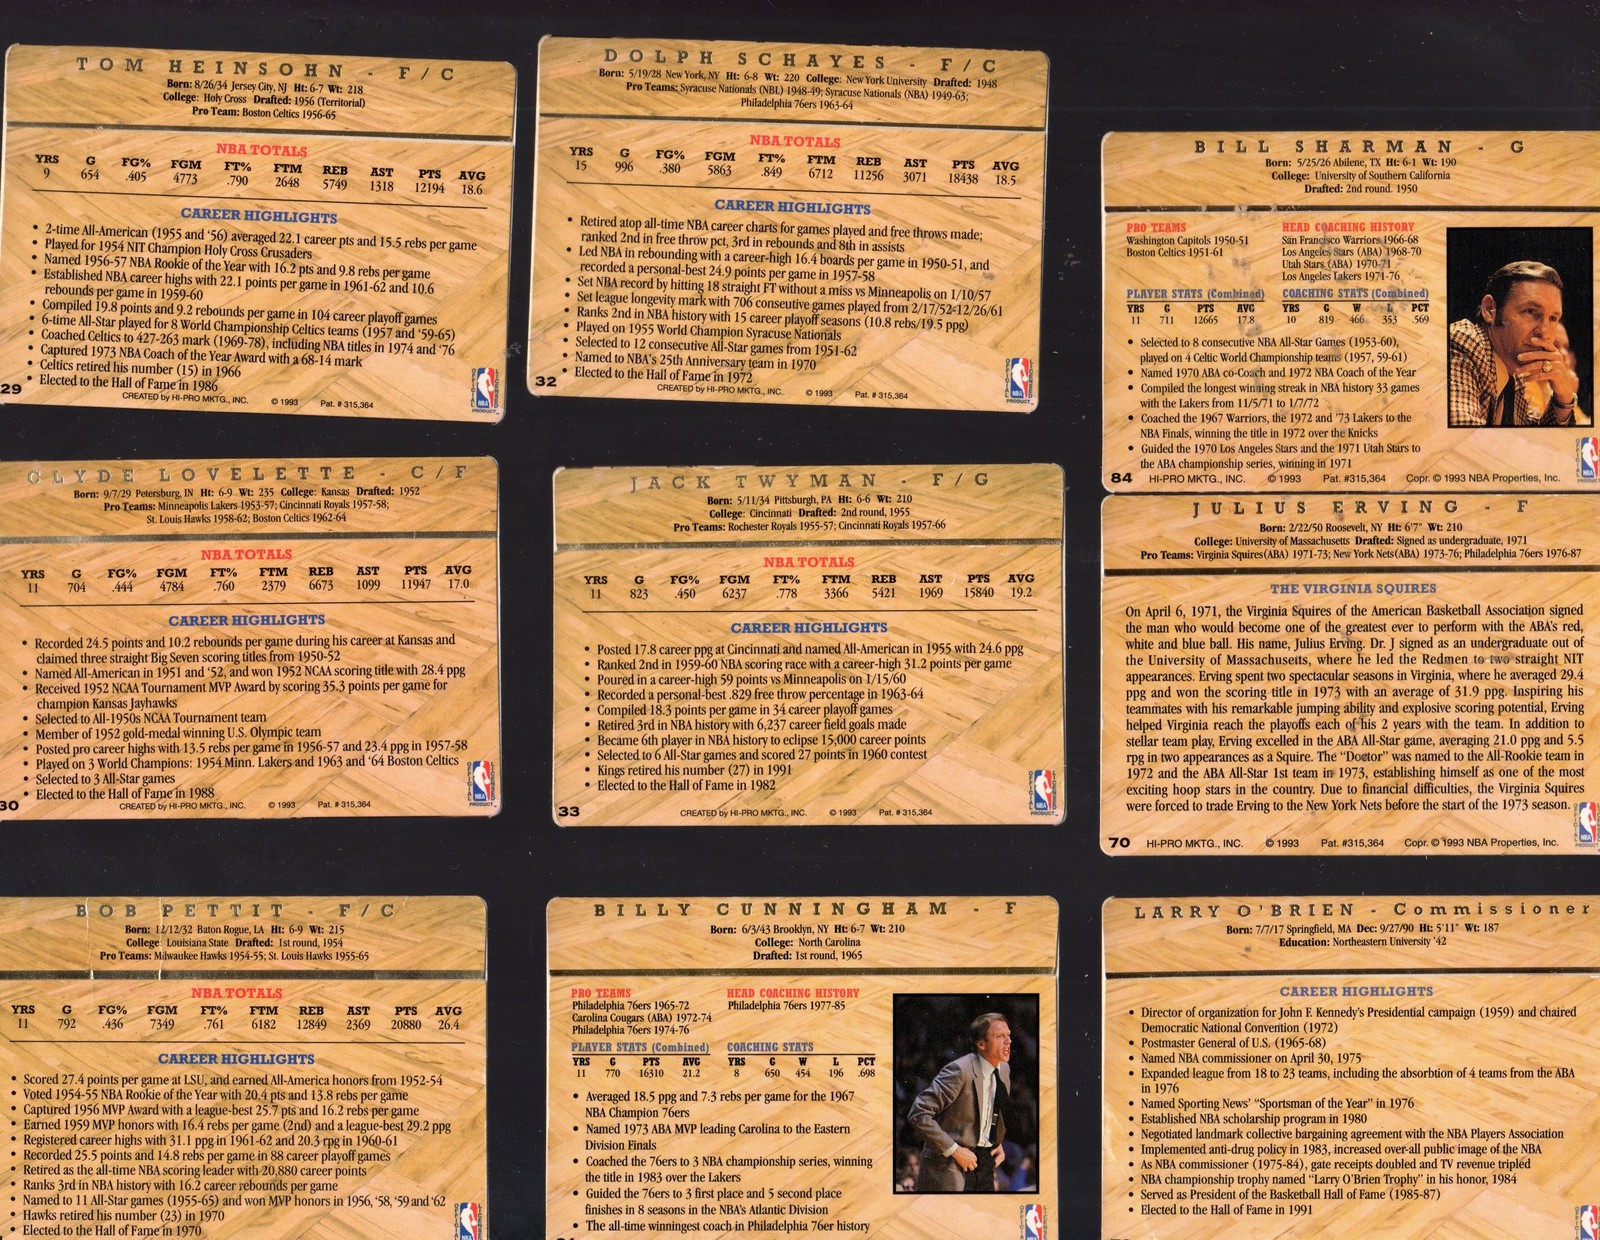 TOM HEINSOHN - F/C
Born: 8/26/34 Jersey City, NJ Ht: 6-7 Wt: 218
College: Holy Cross Drafted: 1956 (Territorial)
Pro Team: Boston Celtics 1956-65
NBA TOTALS
YRS G FG% FGM FT% FTM REB AST PTS AVG
9 654 .405 4773 .790 2648 5749 1318 12194 18.6
CAREER HIGHLIGHTS
• 2-time All-American (1955 and '56) averaged 22.1 career pts and 15.5 rebs per game
• Played for 1954 NIT Champion Holy Cross Crusaders
• Named 1956-57 NBA Rookie of the Year with 16.2 pts and 9.8 rebs per game
• Established NBA career highs with 22.1 points per game in 1961-62 and 10.6
rebounds per game in 1959-60
• Compiled 19.8 points and 9.2 rebounds per game in 104 career playoff games
• 6-time All-Star played for 8 World Championship Celtics teams (1957 and '59-65)
• Coached Celtics to 427-263 mark (1969-78), including NBA titles in 1974 and '76
• Captured 1973 NBA Coach of the Year Award with a 68-14 mark
• Celtics retired his number (15) in 1966
• Elected to the Hall of Fame in 1986
29 CREATED by HI-PRO MKTG., INC. © 1993 Pat. # 315,364
DOLPH SCHAYES - F/C
Born: 5/19/28 New York, NY Ht: 6-8 Wt: 220 College: New York University Drafted: 1948
Pro Teams: Syracuse Nationals (NBL) 1948-49; Syracuse Nationals (NBA) 1949-63;
Philadelphia 76ers 1963-64
NBA TOTALS
YRS G FG% FGM FT% FTM REB AST PTS AVG
15 996 .380 5863 .849 6712 11256 3071 18438 18.5
CAREER HIGHLIGHTS
• Retired atop all-time NBA career charts for games played and free throws made;
ranked 2nd in free throw pct, 3rd in rebounds and 8th in assists
• Led NBA in rebounding with a career-high 16.4 boards per game in 1950-51, and
recorded a personal-best 24.9 points per game in 1957-58
• Set NBA record by hitting 18 straight FT without a miss vs Minneapolis on 1/10/57
• Set league longevity mark with 706 consecutive games played from 2/17/52-12/26/61
• Ranks 2nd in NBA history with 15 career playoff seasons (10.8 rebs/19.5 ppg)
• Played on 1955 World Champion Syracuse Nationals
• Selected to 12 consecutive All-Star games from 1951-62
• Named to NBA's 25th Anniversary team in 1970
• Elected to the Hall of Fame in 1972
32 CREATED by HI-PRO MKTG., INC. © 1993 Pat. # 315,364
BILL SHARMAN - G
Born: 5/25/26 Abilene, TX Ht: 6-1 Wt: 190
College: University of Southern California
Drafted: 2nd round. 1950
PRO TEAMS
Washington Capitols 1950-51
Boston Celtics 1951-61
HEAD COACHING HISTORY
San Francisco Warriors 1966-68
Los Angeles Stars (ABA) 1968-70
Utah Stars (ABA) 1970-71
Los Angeles Lakers 1971-76
PLAYER STATS (Combined) COACHING STATS (Combined)
YRS G PTS AVG YRS G W L PCT
11 711 12665 17.8 10 819 466 353 .569
• Selected to 8 consecutive NBA All-Star Games (1953-60),
played on 4 Celtic World Championship teams (1957, 59-61)
• Named 1970 ABA co-Coach and 1972 NBA Coach of the Year
• Compiled the longest winning streak in NBA history 33 games
with the Lakers from 11/5/71 to 1/7/72
• Coached the 1967 Warriors, the 1972 and '73 Lakers to the
NBA Finals, winning the title in 1972 over the Knicks
• Guided the 1970 Los Angeles Stars and the 1971 Utah Stars to
the ABA championship series, winning in 1971
84 HI-PRO MKTG., INC. © 1993 Pat. #315,364 Copr. © 1993 NBA Properties, Inc.
CLYDE LOVELETTE - C/F
Born: 9/7/29 Petersburg, IN Ht: 6-9 Wt: 235 College: Kansas Drafted: 1952
Pro Teams: Minneapolis Lakers 1953-57; Cincinnati Royals 1957-58;
St. Louis Hawks 1958-62; Boston Celtics 1962-64
NBA TOTALS
YRS G FG% FGM FT% FTM REB AST PTS AVG
11 704 .444 4784 .760 2379 6673 1099 11947 17.0
CAREER HIGHLIGHTS
• Recorded 24.5 points and 10.2 rebounds per game during his career at Kansas and
claimed three straight Big Seven scoring titles from 1950-52
• Named All-American in 1951 and '52, and won 1952 NCAA scoring title with 28.4 ppg
• Received 1952 NCAA Tournament MVP Award by scoring 35.3 points per game for
champion Kansas Jayhawks
• Selected to All-1950s NCAA Tournament team
• Member of 1952 gold-medal winning U.S. Olympic team
• Posted pro career highs with 13.5 rebs per game in 1956-57 and 23.4 ppg in 1957-58
• Played on 3 World Champions: 1954 Minn. Lakers and 1963 and '64 Boston Celtics
• Selected to 3 All-Star games
• Elected to the Hall of Fame in 1988
30 CREATED by HI-PRO MKTG., INC. © 1993 Pat. # 315,364
JACK TWYMAN - F/G
Born: 5/11/34 Pittsburgh, PA Ht: 6-6 Wt: 210
College: Cincinnati Drafted: 2nd round, 1955
Pro Teams: Rochester Royals 1955-57; Cincinnati Royals 1957-66
NBA TOTALS
YRS G FG% FGM FT% FTM REB AST PTS AVG
11 823 .450 6237 .778 3366 5421 1969 15840 19.2
CAREER HIGHLIGHTS
• Posted 17.8 career ppg at Cincinnati and named All-American in 1955 with 24.6 ppg
• Ranked 2nd in 1959-60 NBA scoring race with a career-high 31.2 points per game
• Poured in a career-high 59 points vs Minneapolis on 1/15/60
• Recorded a personal-best .829 free throw percentage in 1963-64
• Compiled 18.3 points per game in 34 career playoff games
• Retired 3rd in NBA history with 6,237 career field goals made
• Became 6th player in NBA history to eclipse 15,000 career points
• Selected to 6 All-Star games and scored 27 points in 1960 contest
• Kings retired his number (27) in 1991
• Elected to the Hall of Fame in 1982
33 CREATED by HI-PRO MKTG., INC. © 1993 Pat. # 315,364
JULIUS ERVING - F
Born: 2/22/50 Roosevelt, NY Ht: 6'7" Wt: 210
College: University of Massachusetts Drafted: Signed as undergraduate, 1971
Pro Teams: Virginia Squires(ABA) 1971-73; New York Nets(ABA) 1973-76; Philadelphia 76ers 1976-87
THE VIRGINIA SQUIRES
On April 6, 1971, the Virginia Squires of the American Basketball Association signed
the man who would become one of the greatest ever to perform with the ABA's red,
white and blue ball. His name, Julius Erving. Dr. J signed as an undergraduate out of
the University of Massachusetts, where he led the Redmen to two straight NIT
appearances. Erving spent two spectacular seasons in Virginia, where he averaged 29.4
ppg and won the scoring title in 1973 with an average of 31.9 ppg. Inspiring his
teammates with his remarkable jumping ability and explosive scoring potential, Erving
helped Virginia reach the playoffs each of his 2 years with the team. In addition to
stellar team play, Erving excelled in the ABA All-Star game, averaging 21.0 ppg and 5.5
rpg in two appearances as a Squire. The "Doctor" was named to the All-Rookie team in
1972 and the ABA All-Star 1st team in 1973, establishing himself as one of the most
exciting hoop stars in the country. Due to financial difficulties, the Virginia Squires
were forced to trade Erving to the New York Nets before the start of the 1973 season.
70 HI-PRO MKTG., INC. © 1993 Pat. #315,364 Copr. © 1993 NBA Properties, Inc.
BOB PETTIT - F/C
Born: 12/12/32 Baton Rogue, LA Ht: 6-9 Wt: 215
College: Louisiana State Drafted: 1st round, 1954
Pro Teams: Milwaukee Hawks 1954-55; St. Louis Hawks 1955-65
NBA TOTALS
YRS G FG% FGM FT% FTM REB AST PTS AVG
11 792 .436 7349 .761 6182 12849 2369 20880 26.4
CAREER HIGHLIGHTS
• Scored 27.4 points per game at LSU, and earned All-America honors from 1952-54
• Voted 1954-55 NBA Rookie of the Year with 20.4 pts and 13.8 rebs per game
• Captured 1956 MVP Award with a league-best 25.7 pts and 16.2 rebs per game
• Earned 1959 MVP honors with 16.4 rebs per game (2nd) and a league-best 29.2 ppg
• Registered career highs with 31.1 ppg in 1961-62 and 20.3 rpg in 1960-61
• Recorded 25.5 points and 14.8 rebs per game in 88 career playoff games
• Retired as the all-time NBA scoring leader with 20,880 career points
• Ranks 3rd in NBA history with 16.2 career rebounds per game
• Named to 11 All-Star games (1955-65) and won MVP honors in 1956, '58, '59 and '62
• Hawks retired his number (23) in 1970
• Elected to the Hall of Fame in 1970
BILLY CUNNINGHAM - F
Born: 6/3/43 Brooklyn, NY Ht: 6-7 Wt: 210
College: North Carolina
Drafted: 1st round, 1965
PRO TEAMS
Philadelphia 76ers 1965-72
Carolina Cougars (ABA) 1972-74
Philadelphia 76ers 1974-76
HEAD COACHING HISTORY
Philadelphia 76ers 1977-85
PLAYER STATS (Combined) COACHING STATS
YRS G PTS AVG YRS G W L PCT
11 770 16310 21.2 8 650 454 196 .698
• Averaged 18.5 ppg and 7.3 rebs per game for the 1967
NBA Champion 76ers
• Named 1973 ABA MVP leading Carolina to the Eastern
Division Finals
• Coached the 76ers to 3 NBA championship series, winning
the title in 1983 over the Lakers
• Guided the 76ers to 3 first place and 5 second place
finishes in 8 seasons in the NBA's Atlantic Division
• The all-time winningest coach in Philadelphia 76er history
LARRY O'BRIEN - Commissioner
Born: 7/7/17 Springfield, MA Dec: 9/27/90 Ht: 5'11" Wt: 187
Education: Northeastern University '42
CAREER HIGHLIGHTS
• Director of organization for John F. Kennedy's Presidential campaign (1959) and chaired
Democratic National Convention (1972)
• Postmaster General of U.S. (1965-68)
• Named NBA commissioner on April 30, 1975
• Expanded league from 18 to 23 teams, including the absorbtion of 4 teams from the ABA
in 1976
• Named Sporting News' "Sportsman of the Year" in 1976
• Established NBA scholarship program in 1980
• Negotiated landmark collective bargaining agreement with the NBA Players Association
• Implemented anti-drug policy in 1983, increased over-all public image of the NBA
• As NBA commissioner (1975-84), gate receipts doubled and TV revenue tripled
• NBA championship trophy named "Larry O'Brien Trophy" in his honor, 1984
• Served as President of the Basketball Hall of Fame (1985-87)
• Elected to the Hall of Fame in 1991